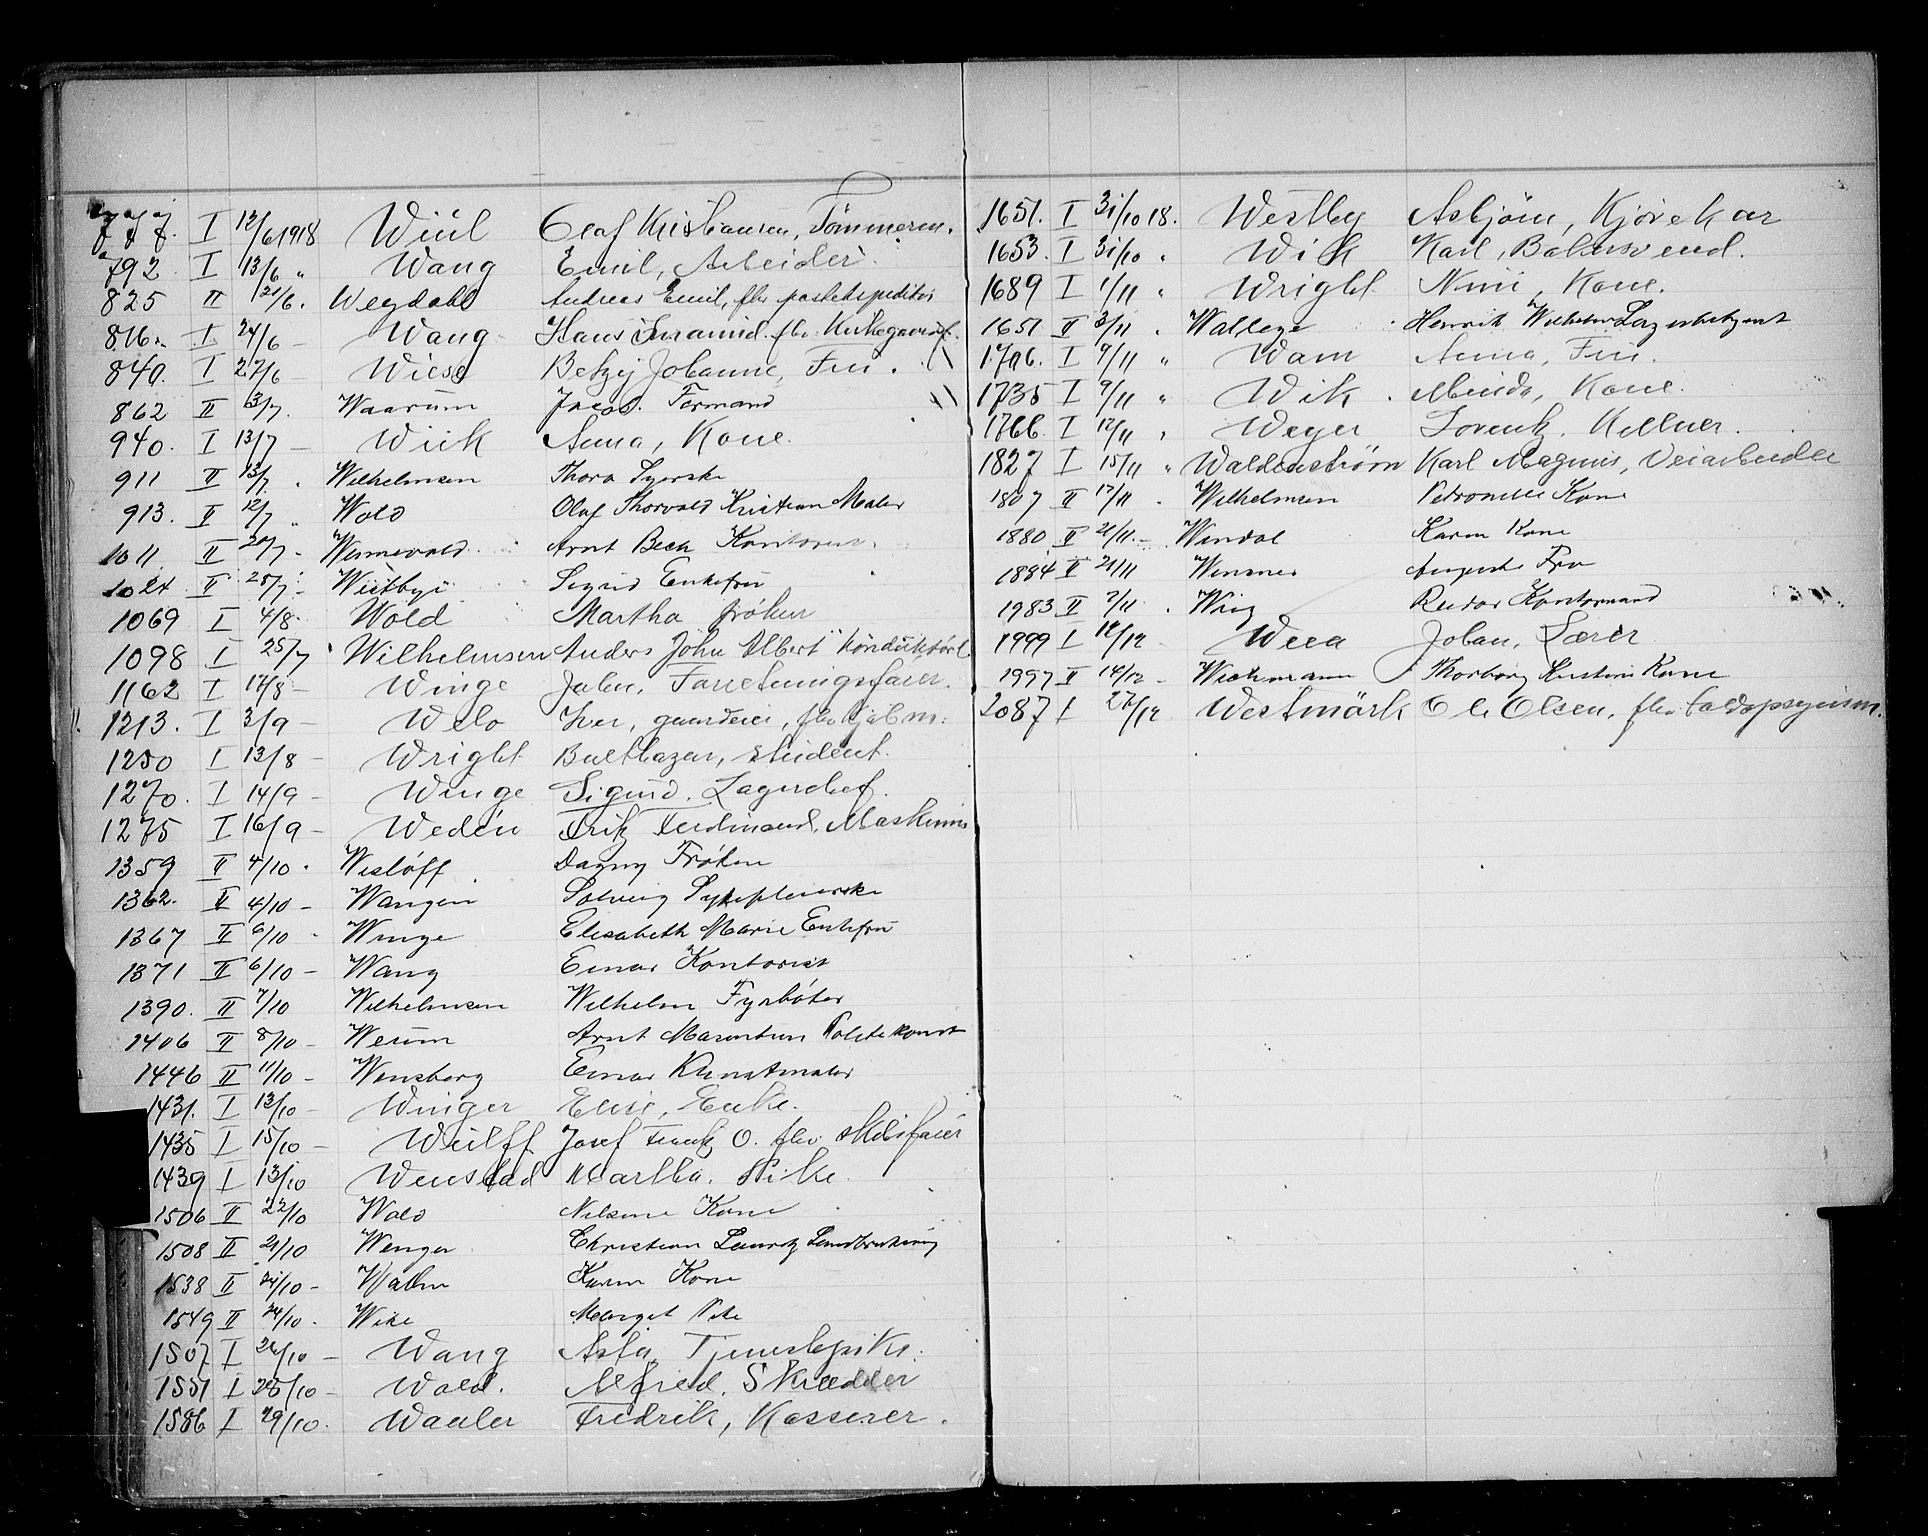 777. I 12/6 1918 Wiul Olaf Kristiansen, Tømmerm.
792. I 13/6 " Wang Emil, Arbeider.
825 II 21/6. Wegdahl Andreas Emil, fhv postekspeditør
816. I 24/6 – Wang Hans fhv.
840. I 27/6 Wiese Betzy Johanne, Fru.
862 II 3/7. Waarum Jacob. Formand
940. I 13/7 – Wiik Anna, Kone.
911 II 13/7 . Wilhelmsen Thora Syerske
913. II 12/7 " Wold Olaf Thorvald Kristian Maler
1011 II 20/7 - Wennevold Arnt Bech Kontorist.
1024 II 25/7 - Wistbye Sigrid Enkefru
1069 I 4/8 Wold Martha frøken
1098 I 25/7 Wilhelmsen Anders John Albert Konduktør
1162 I 17/8 – Winge John, Forretningsfører.
1213. I 3/9 – Welo Iver, gaardeier,
1250 I 13/8 – Wright Balthazar, student.
1270. I 14/9 – Winge Sigurd. Lagerchef.
1275 I 16/9 – Wedén Fritz Ferdinand, Maskinm
1359 II 4/10 . Wisløff Dagny Frøken
1362. II 4/10 – Wangen Solveig Sykepleierske
1367 II 6/10 - Winge Elisabeth Marie Enkefru
1371 II 6/10 – Wang Einar Kontorist
1390. II 7/10 Wilhelmsen Wilhelm Fyrbøter
1406 II 8/10 – Weum Arnt Politikonst
1446 II 11/10 – Wensberg Einar Kunstmaler
1431. I 13/10 – Winger Elise, Enke.
1435 I 15/10 – Wulff Josef Frantz O. fhv. skibsfører
1439 I 13/10 Wenstad Martha. Pike.
1506 II 22/10 Wold Nilsine Kone
1508 II 21/10 Wenger Christian Lauritz
1538 II 24/10 – Walm Karen Kone
1549 II 24/10 . Wike Margit Pike
1507 I 26/10 – Wang Asta, Tjenestepike.
1551 I 25/10 – Wold. Alfred. Skrædder
1586 I 29/10. Waaler Fredrik, Kasserer.
1651. I 31/10 18. Westby Asbjørn, Kjørekar
1653. I 31/10 " Wik Karl, Bakersvend.
1689 I 1/11 " Wright Nini, Kone.
1651 II 3/11 . Wallege Henrik Wilhelm
1706. I 7/11 " Wam Anna, Fru.
1735 I 9/11 " Wik . Minda, Kone.
1766. I 12/11 , Weyer Lorentz. Kellner.
1827 I 15/11 " Waldenstrøm Karl Magnus, Veiarbeider
1807 II 17/11 . Wilhelmsen Petronelle Kone
1880 II 21/11. – Wendol Karen Kone
1884 II 21/11 Wensnes Auguste Fru
1983 II 7/11 . Wiig Reidar Kontormand
1999 I 12/12 Weea Johan, Lærer
1997 II 14/12 – Wichmann Thorborg Kristine Kone
2087 I 27/12 Westmörk Ole Olsen, fhv. toldopsynsm.